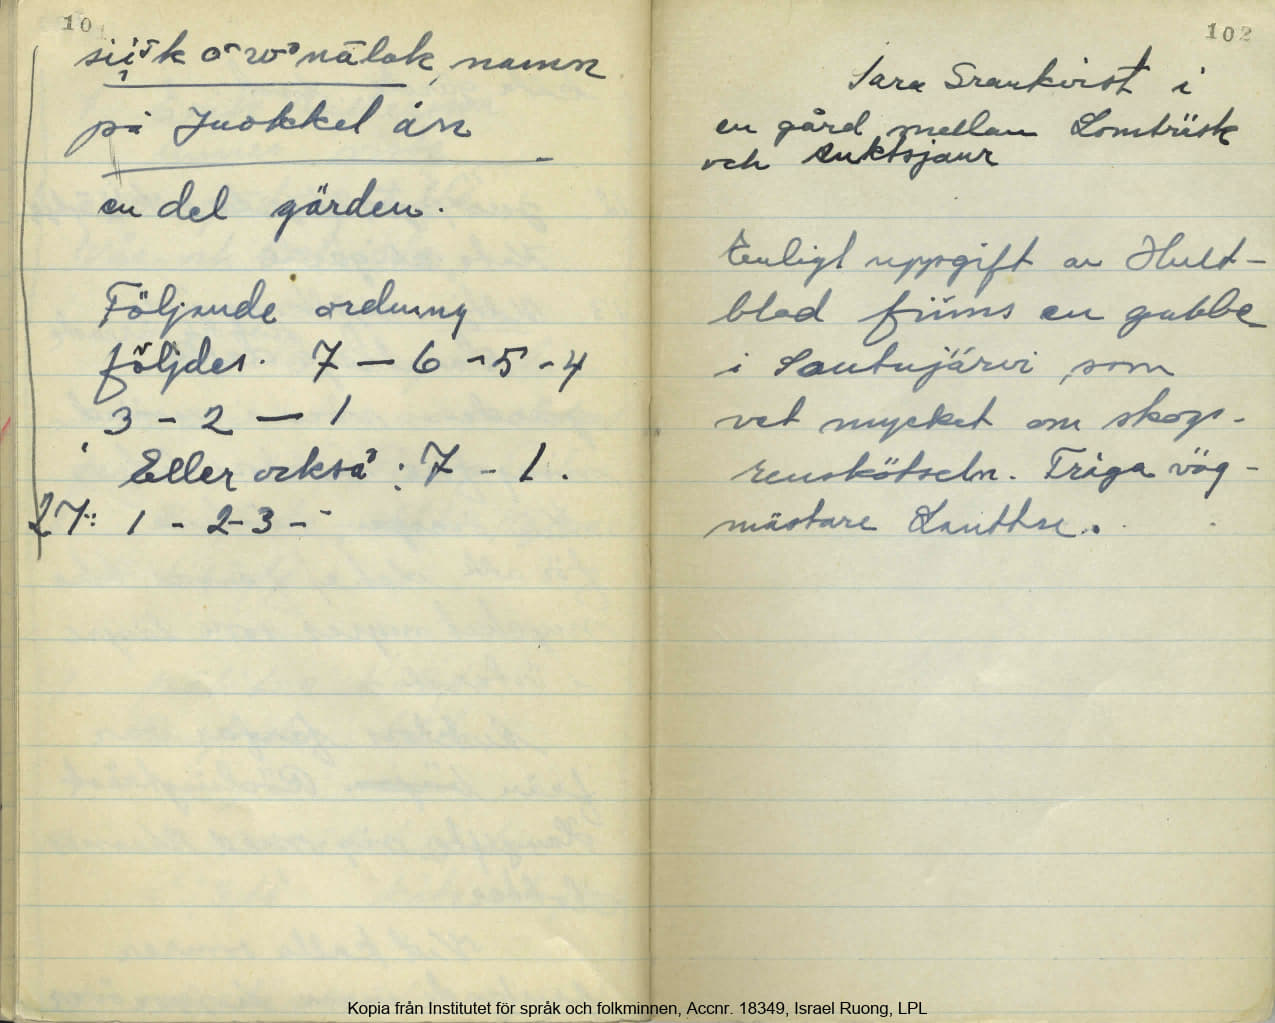 101
namn
på Juokkel ån
en del gärden.
Följande ordning
följdes. 7 — 6 - 5 - 4
3 - 2 — 1
Eller också: 7 - 1.
27: 1 - 2 - 3 -
102
Sara i
en gård mellan Lomträsk
och Auktsjaur
Enligt uppgift av Hult-
blad finns en gubbe
i Sautujärvi som
vet mycket om skogs-
renskötseln. Fråga väg-
mästare
Kopia från Institutet för språk och folkminnen, Accnr. 18349, Israel Ruong, LPL